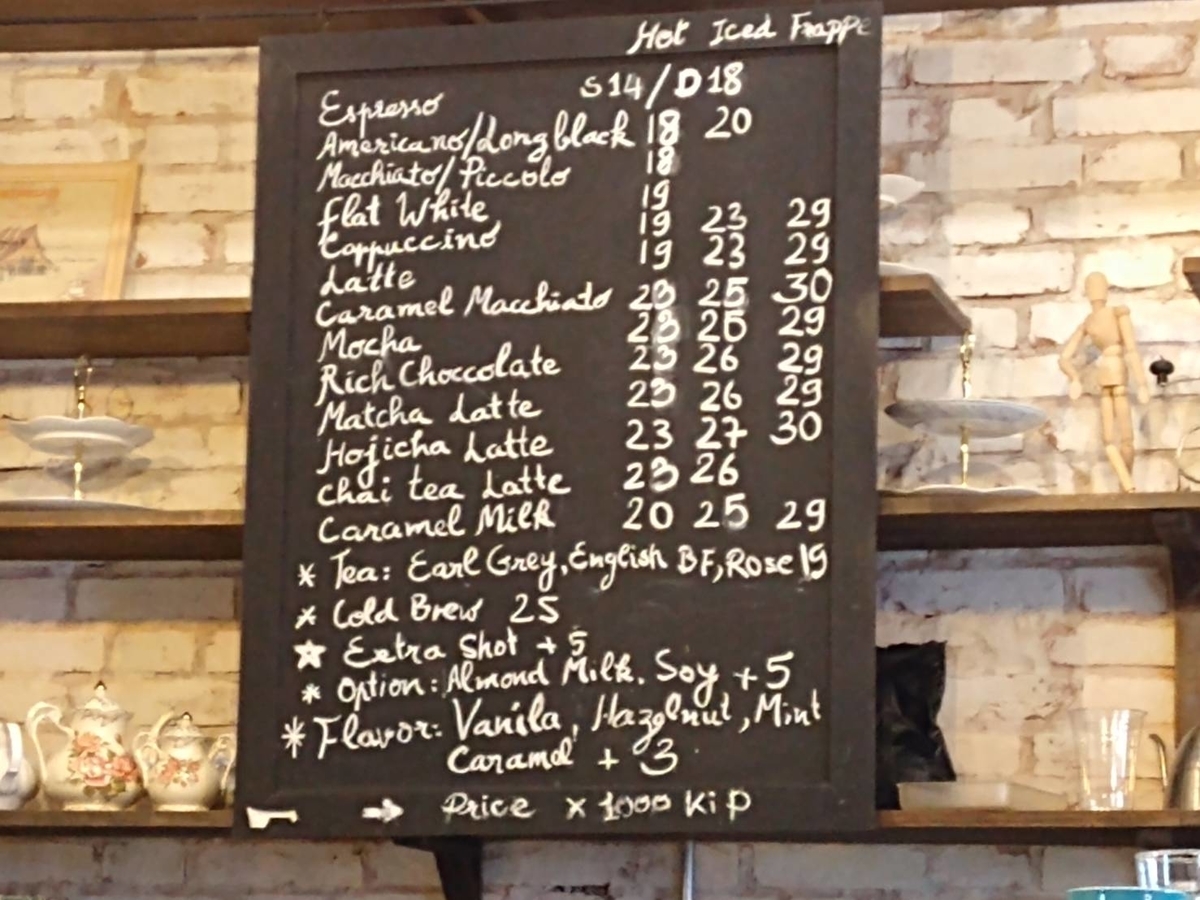 Hot Iced Frappe
Espresso S14/D18
Americano/Longblack 18 20
Macchiato/Piccolo 18
Flat White 19
Cappuccino 19 23 29
Latte 19 23 29
Caramel Macchiato 23 25 30
Mocha 23 26 29
Rich Choccolate 23 26 29
Matcha Latte 23 26 29
Hojicha Latte 23 27 30
Chai tea Latte 23 26
Caramel Milk 20 25 29
* Tea: Earl Grey, English BF, Rose 19
* Cold Brew 25
★ Extra Shot + 5
* Option: Almond Milk. Soy + 5
* Flavor: Vanila, Hazelnut, Mint
Caramel + 3
→ Price x 1000 Kip